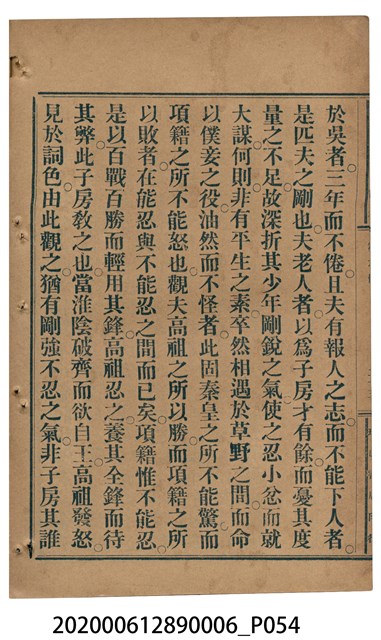 於吳者三年而不倦且夫有報人之志而不能下人者
是匹夫之剛也夫老人者以爲子房才有餘而憂其度
量之不足故深折其少年剛銳之氣使之忍小忿而就
大謀何則非有平生之素卒然相遇於草野之間而命
以僕妾之役油然而不怪者此固秦皇之所不能驚而
項籍之所不能怒也觀夫高祖之所以勝而項籍之所
以敗者在能忍與不能忍之間而已矣項籍惟不能忍
是以百戰百勝而輕用其鋒高祖忍之養其全鋒而待
其弊此子房教之也當淮陰破齊而欲自王高祖發怒
見於詞色由此觀之猶有剛強不忍之氣非子房其誰
202000612890006_P054